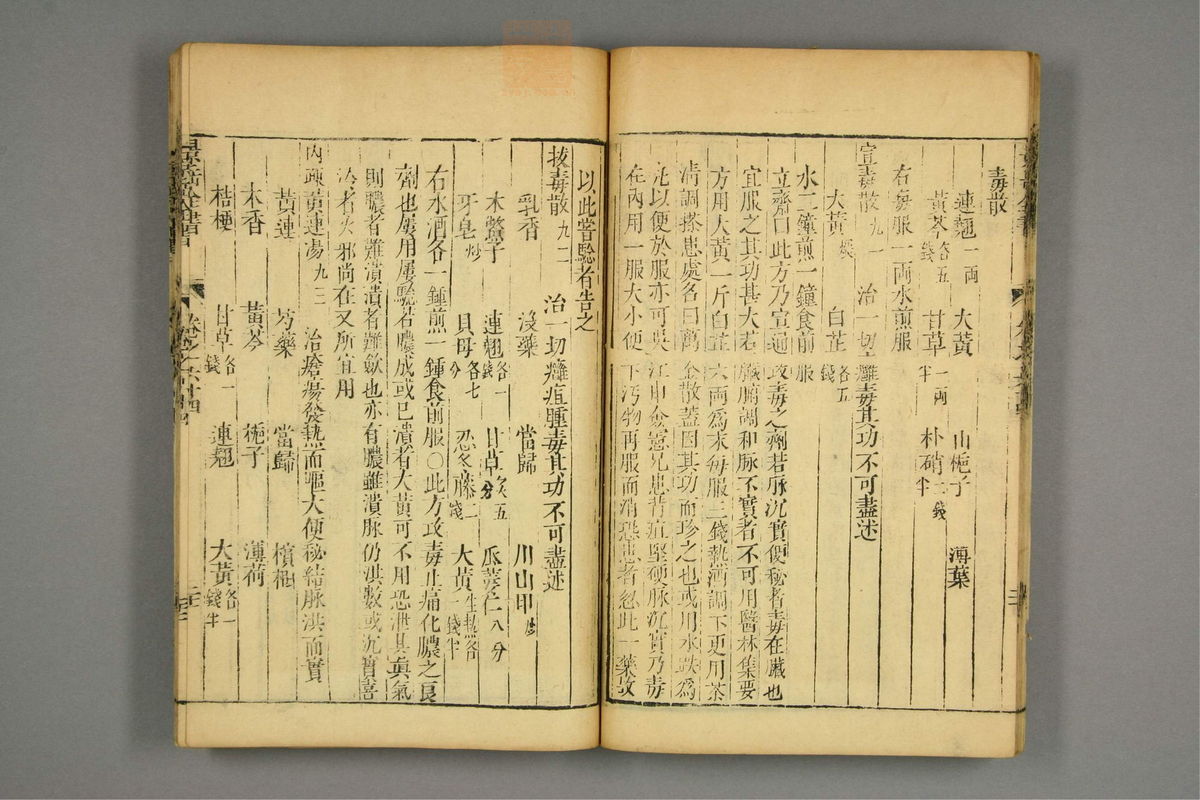 毒散
連翹一兩 大黃 山梔子 薄葉
黃芩各五錢 甘草一兩半 朴硝二錢半
右每服一兩水煎服
宣毒散九一 治一切癰毒其功不可盡述
大黃煨 白芷各五錢
水二鐘煎一鐘食前服
立齋曰此方乃宣通攻毒之劑若脉沉實便秘者毒在臟也
宜服之其功甚大若臟腑調和脉不實者不可用醫林集要
方用大黃一斤白芷六兩為末每服三錢熱酒調下更用茶
清調搽患處名曰萬金散蓋因其功而珍之也或用水跌為
丸以便於服亦可吳江申僉憲兄患背疽堅硬脉沉實乃毒
在內用一服大小便下污物再服而消恐患者忽此一藥故
以此嘗驗者告之
拔毒散九二 治一切癰疽腫毒其功不可盡述
乳香 沒藥 當歸 川山甲炒
木鱉子 連翹各一錢 甘草炙五分 瓜蔞仁八分
牙皂炒 貝母各七分 忍冬藤二錢 大黃生熟各一錢半
右水酒各一鍾煎一鍾食前服○此方攻毒止痛化膿之良
劑也屢用屢驗若膿成或已潰者大黃可不用恐泄其真氣
則膿者難潰潰者難歛也亦有膿雖潰脉仍洪數或沉實喜
冷者火邪尚在又所宜用
內疎黃連湯九三 治瘡瘍發熱而嘔大便秘結脉洪而實
黃連 芍藥 當歸 檳榔
木香 黃芩 梔子 薄荷
桔梗 甘草各一錢 連翹 大黃各一錢半